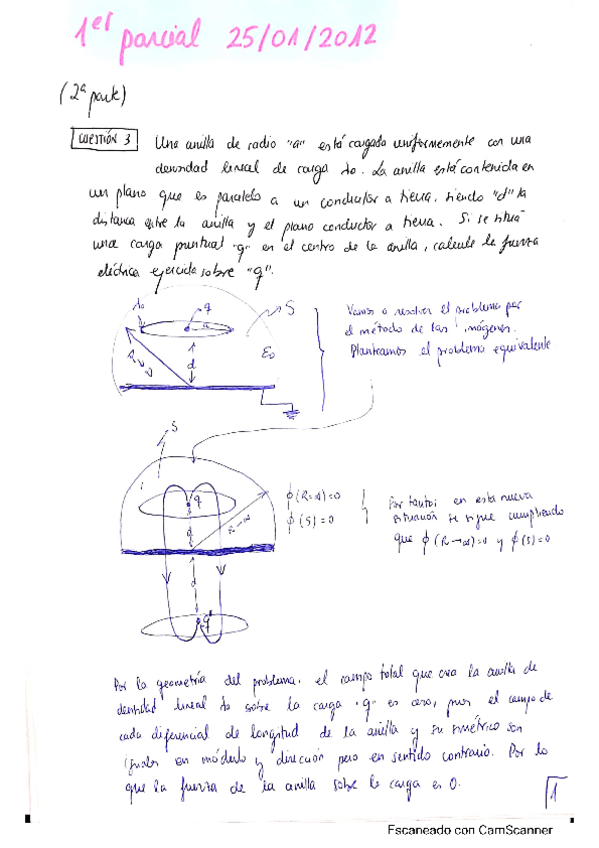 1er parcial 25/01/2012
(2ª parte)
CUESTIÓN 3 Una anilla de radio "a" está cargada uniformemente con una
densidad lineal de carga λo. La anilla está contenida en
un plano que es paralelo a un conductor a tierra, siendo "d" la
distancia entre la anilla y el plano conductor a tierra. Si se sitúa
una carga puntual "q" en el centro de la anilla, calcule la fuerza
eléctrica ejercida sobre "q".
λo q S
a
Vamos a resolver el problema por
el método de las imágenes.
Planteamos el problema equivalente
R→∞ d ε0
S
q
R→∞
d
d
q'
ϕ(R=∞)=0
ϕ(S)=0
Por tanto: en esta nueva
situación se sigue cumpliendo
que ϕ(R→∞)=0 y ϕ(S)=0
Por la geometría del problema, el campo total que crea la anilla de
densidad lineal λo sobre la carga "q" es cero, pues el campo de
cada diferencial de longitud de la anilla y su simétrico son
iguales en módulo y dirección pero en sentido contrario. Por lo
que la fuerza de la anilla sobre la carga es 0.
1
Escaneado con CamScanner